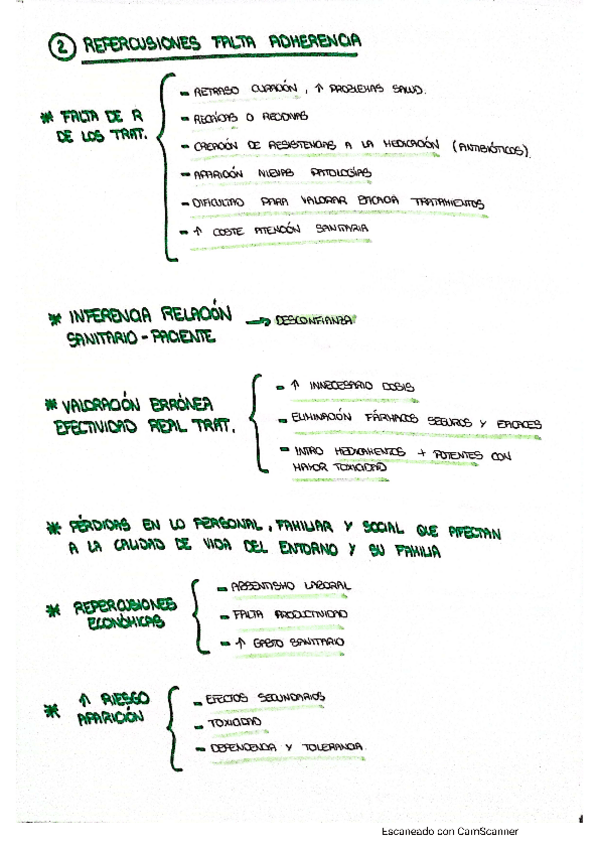 2 REPERCUSIONES FALTA ADHERENCIA
* FALTA DE R
DE LOS TRAT.
- RETRASO CURACIÓN, ↑ PROBLEMAS SALUD.
- RECAÍDAS O RECIDIVAS
- CREACIÓN DE RESISTENCIAS A LA MEDICACIÓN (ANTIBIÓTICOS).
- APARICIÓN NUEVAS PATOLOGÍAS
- DIFICULTAD PARA VALORAR EFICACIA TRATAMIENTOS
- ↑ COSTE ATENCIÓN SANITARIA
* INFERENCIA RELACIÓN
SANITARIO - PACIENTE
→ DESCONFIANZA
* VALORACIÓN ERRÓNEA
EFECTIVIDAD REAL TRAT.
- ↑ INNECESARIO DOSIS
- ELIMINACIÓN FÁRMACOS SEGUROS Y EFICACES
- INTRO MEDICAMENTOS + POTENTES CON
MAYOR TOXICIDAD
* PÉRDIDAS EN LO PERSONAL, FAMILIAR Y SOCIAL QUE AFECTAN
A LA CALIDAD DE VIDA DEL ENTORNO Y SU FAMILIA
* REPERCUSIONES
ECONÓMICAS
- ABSENTISMO LABORAL
- FALTA PRODUCTIVIDAD
- ↑ GASTO SANITARIO
* ↑ RIESGO
APARICIÓN
- EFECTOS SECUNDARIOS
- TOXICIDAD
- DEPENDENCIA Y TOLERANCIA.
Escaneado con CamScanner